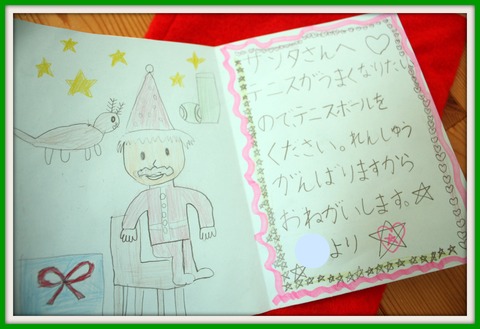 サンタさんへ♡
テニスがうまくなりたい
のでテニスボールを
ください。れんしゅう
がんばりますから
おねがいします。☆
より